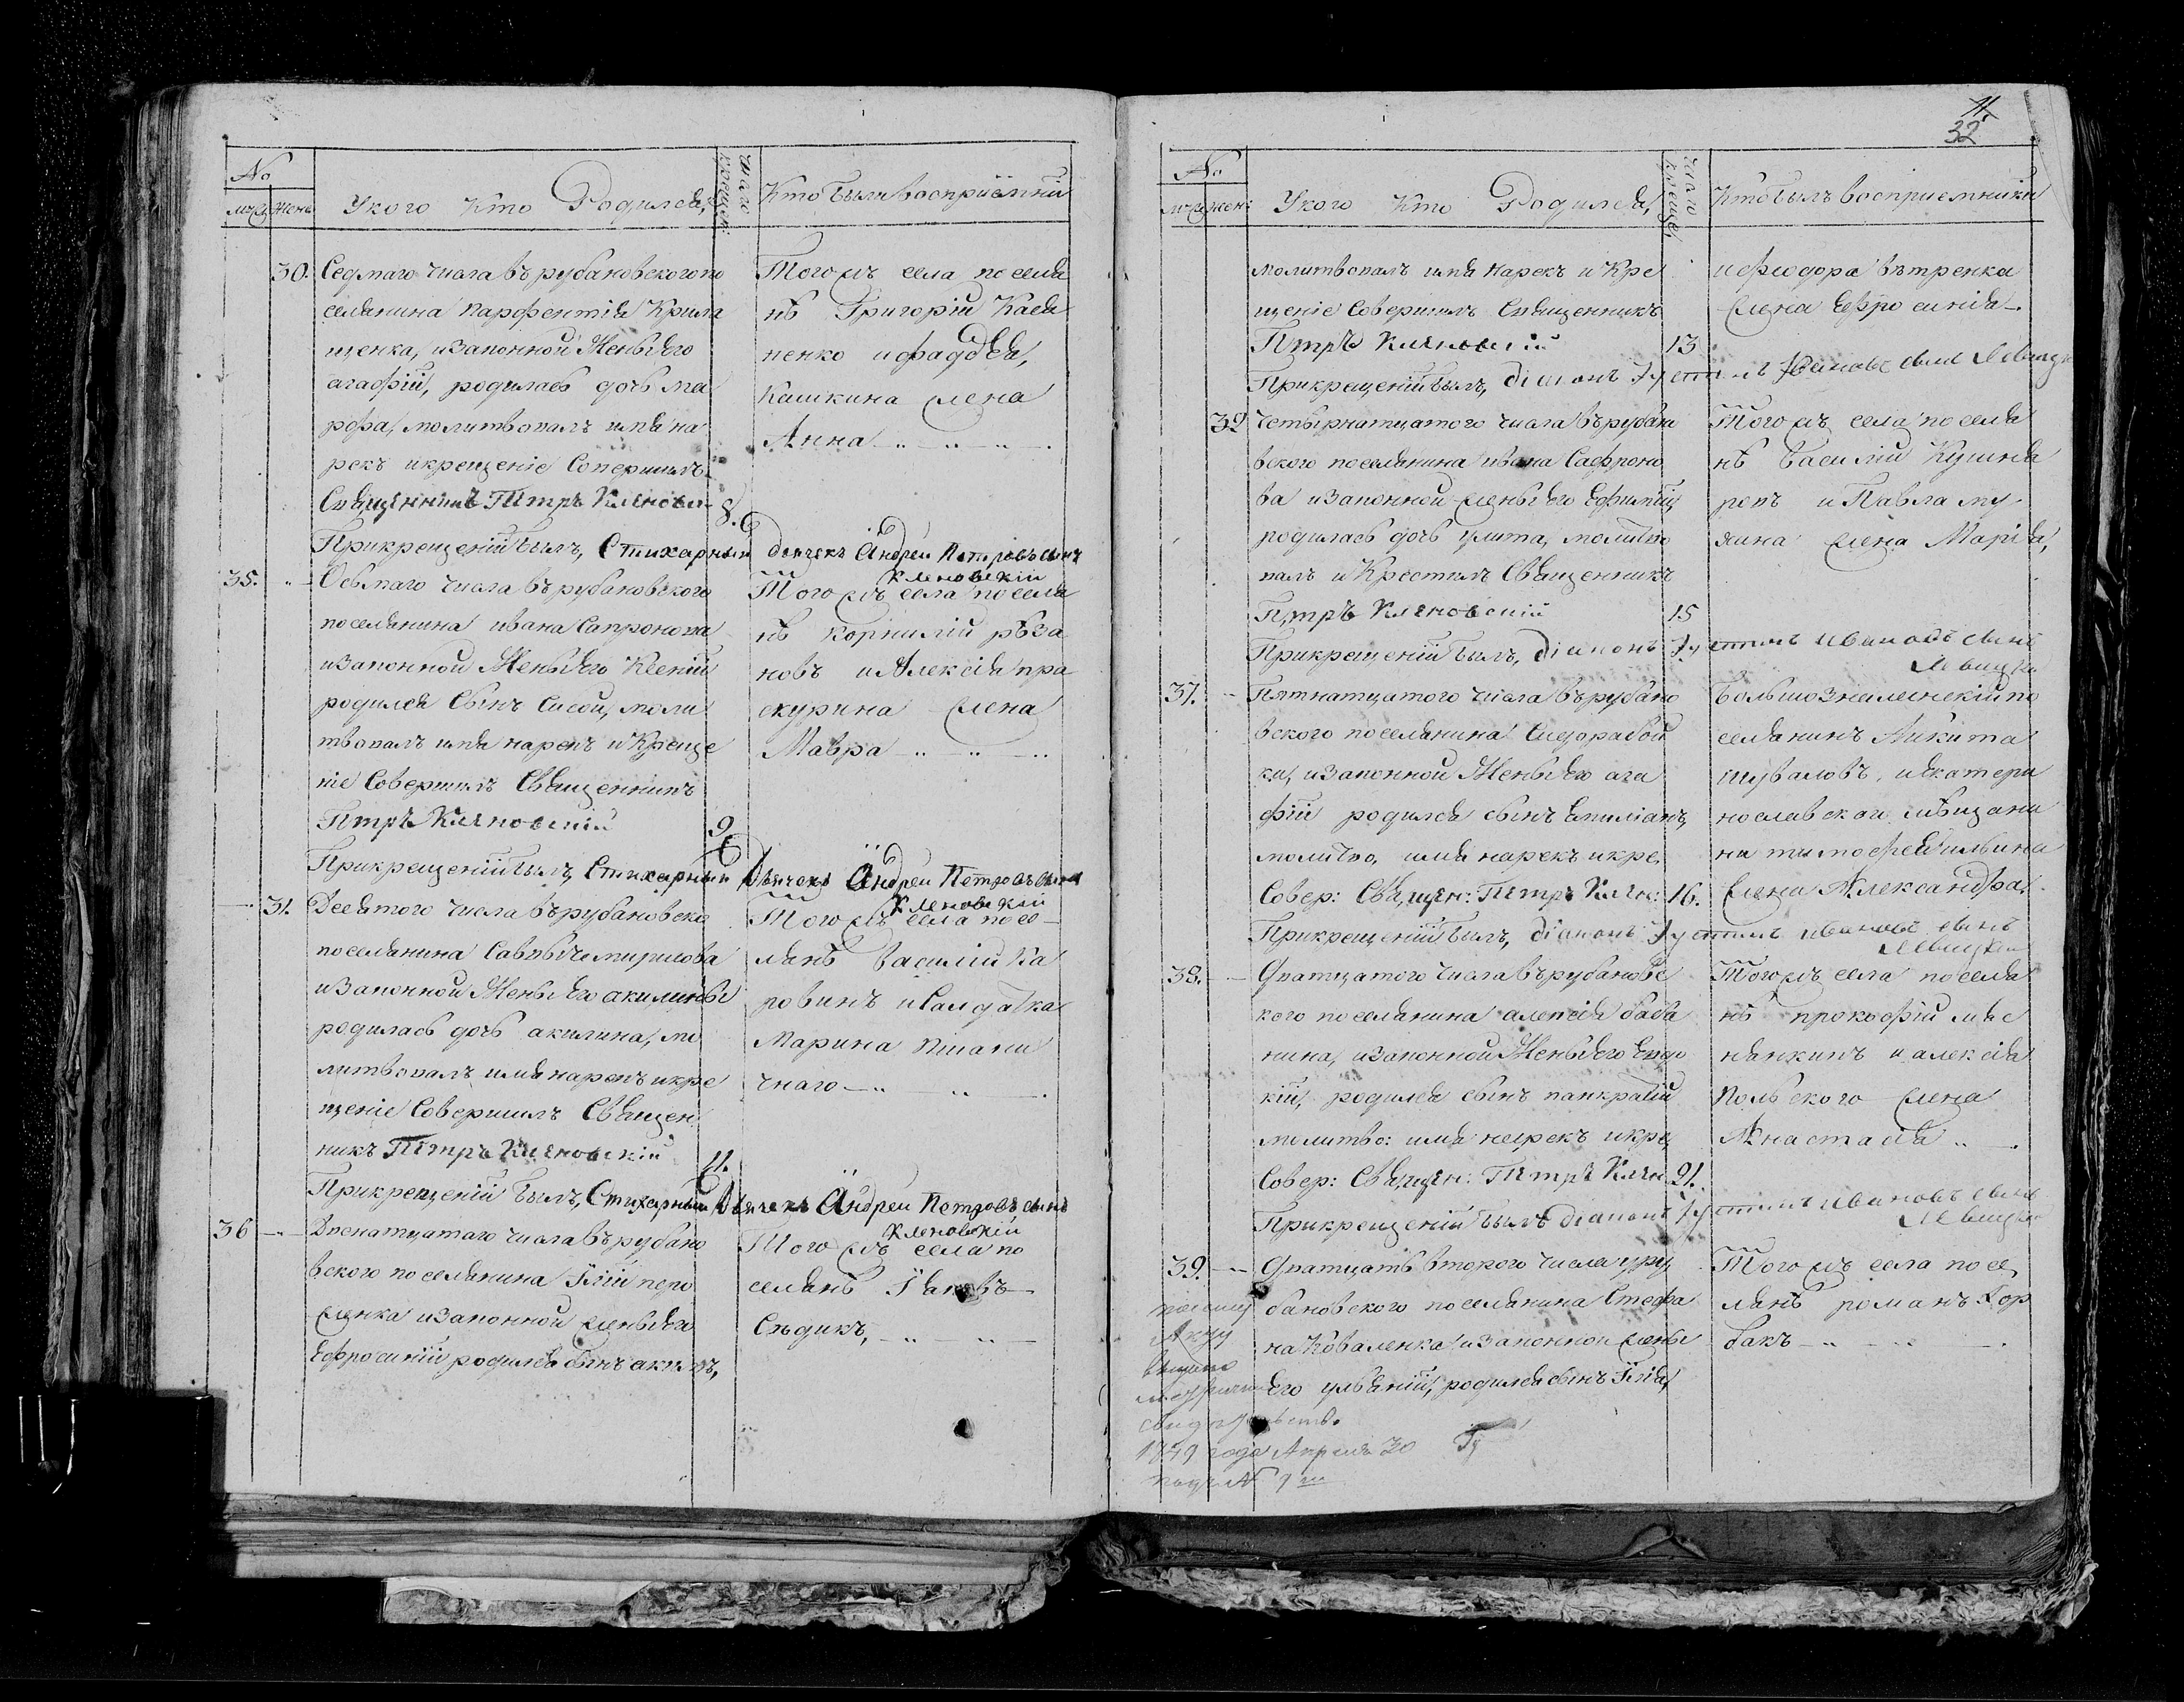 No
муж: жен:
У кого Кто Родился,
Число крещен:
Кто были восприемники
30. Седмаго числа въ рубановского по
селянина Парфентія Крила
щенка, и законной Жены Его
агафіи, родилась дочь ма
рфа, молитвовалъ имя на
рекъ и крещеніе Совершилъ
Священникъ Петръ Кленовскій
8.
Того жъ села поселя
нъ Григорій Касія
ненко и фаддея,
Кашкина жена
Анна
При крещеніи былъ, Стихарный дьячекъ Андрей Петровъ сынъ
Кленовскій
35. Осьмаго числа въ рубановского
поселянина ивана Сапронова
и законной Жены Его Ксеніи
родился Сынъ Сисой, моли
твовалъ имя нарекъ и Креще
ніе Совершилъ Священникъ
Петръ Кленовскій
9
Того жъ села поселя
нъ Корнилій рѣза
новъ и Алексія пра
скурина жена
Мавра
При крещеніи былъ, Стихарный Дьячекъ Андрей Петровъ сынъ
Кленовскій
31. Десятого числа въ рубановско
поселянина Саввы Чемирилова
и законной Жены Его акилины
родилась дочь акилина, мо
литвовалъ имя нарекъ и кре
щеніе Совершилъ Священ
никъ Петръ Кленовскій
11.
Того жъ села посе
лянъ василій Ка
ровинъ и Салдатка
Марина Пшани
чнаго
При крещеніи былъ, Стихарный Дьячекъ Андрей Петровъ сынъ
Кленовскій
36 Двенатцатаго числа въ рубано
вского поселянина Іліи перо
женка и законной жены Его
Ефросиніи родился сынъ акимъ,
Того жъ села по
селянъ Іаковъ
Сѣдикъ,
11.
32
No
муж: жен:
У кого Кто Родился,
Число креще:
Кто былъ восприемники
молитвовалъ имя нарекъ и Кре
щеніе Совершилъ Священникъ
Петръ Кленовскій
13
и феодора вѣтренка
жена Ефросинія
При крещеніи былъ, діаконъ Іустинъ Ивановъ сынъ Левицкій
32 Четырнатцатого числа въ рубано
вского поселянина ивана Сафроно
ва и законной жены Его Ефиміи,
родилась дочь улита, молитво
валъ и Крестилъ Священникъ
Петръ Кленовскій
15
Того жъ села поселя
нъ Василій Кушна
ревъ и Павла му
жина жена Марія,
При крещеніи былъ, діаконъ Іустинъ Ивановъ сынъ
Левицкій
37. Пятнатцатого числа въ рубано
вского поселянина Сидора бой
ки, и законной Жены Его ага
фіи родился сынъ Емиліанъ,
молитво, имя нарекъ и кре.
Совер: Священ: Петръ Клен: 16.
Большознаменскій по
селянинъ Никита
шуваловъ, и Екатери
нославского мѣщани
на тимофея ильина
жена Александра.
При крещеніи былъ, діаконъ Іустинъ Ивановъ сынъ
Левицкій
38. Дватцатого числа въ рубановс
кого поселянина алексія баба
нина, и законной Жены Его Евдо
кіи, родился сынъ панкратій
молитво: имя нарекъ и кре,
Совер: Священ: Петръ Клен 21.
Того жъ села поселя
нъ прокофій мас
нянкинъ и алексія
Польского жена
Анастасія
При крещеніи былъ діаконъ Іустинъ Ивановъ сынъ
Левицкій
39. Дватцать второго числа у ру
бановского поселянина Стефа
на Коваленка и законной жены
Его ульяніи, родился сынъ Ілія,
Того жъ села посе
лянъ романъ Гор
бакъ
свидетельство
1849 года Апреля 30
подъ N 9